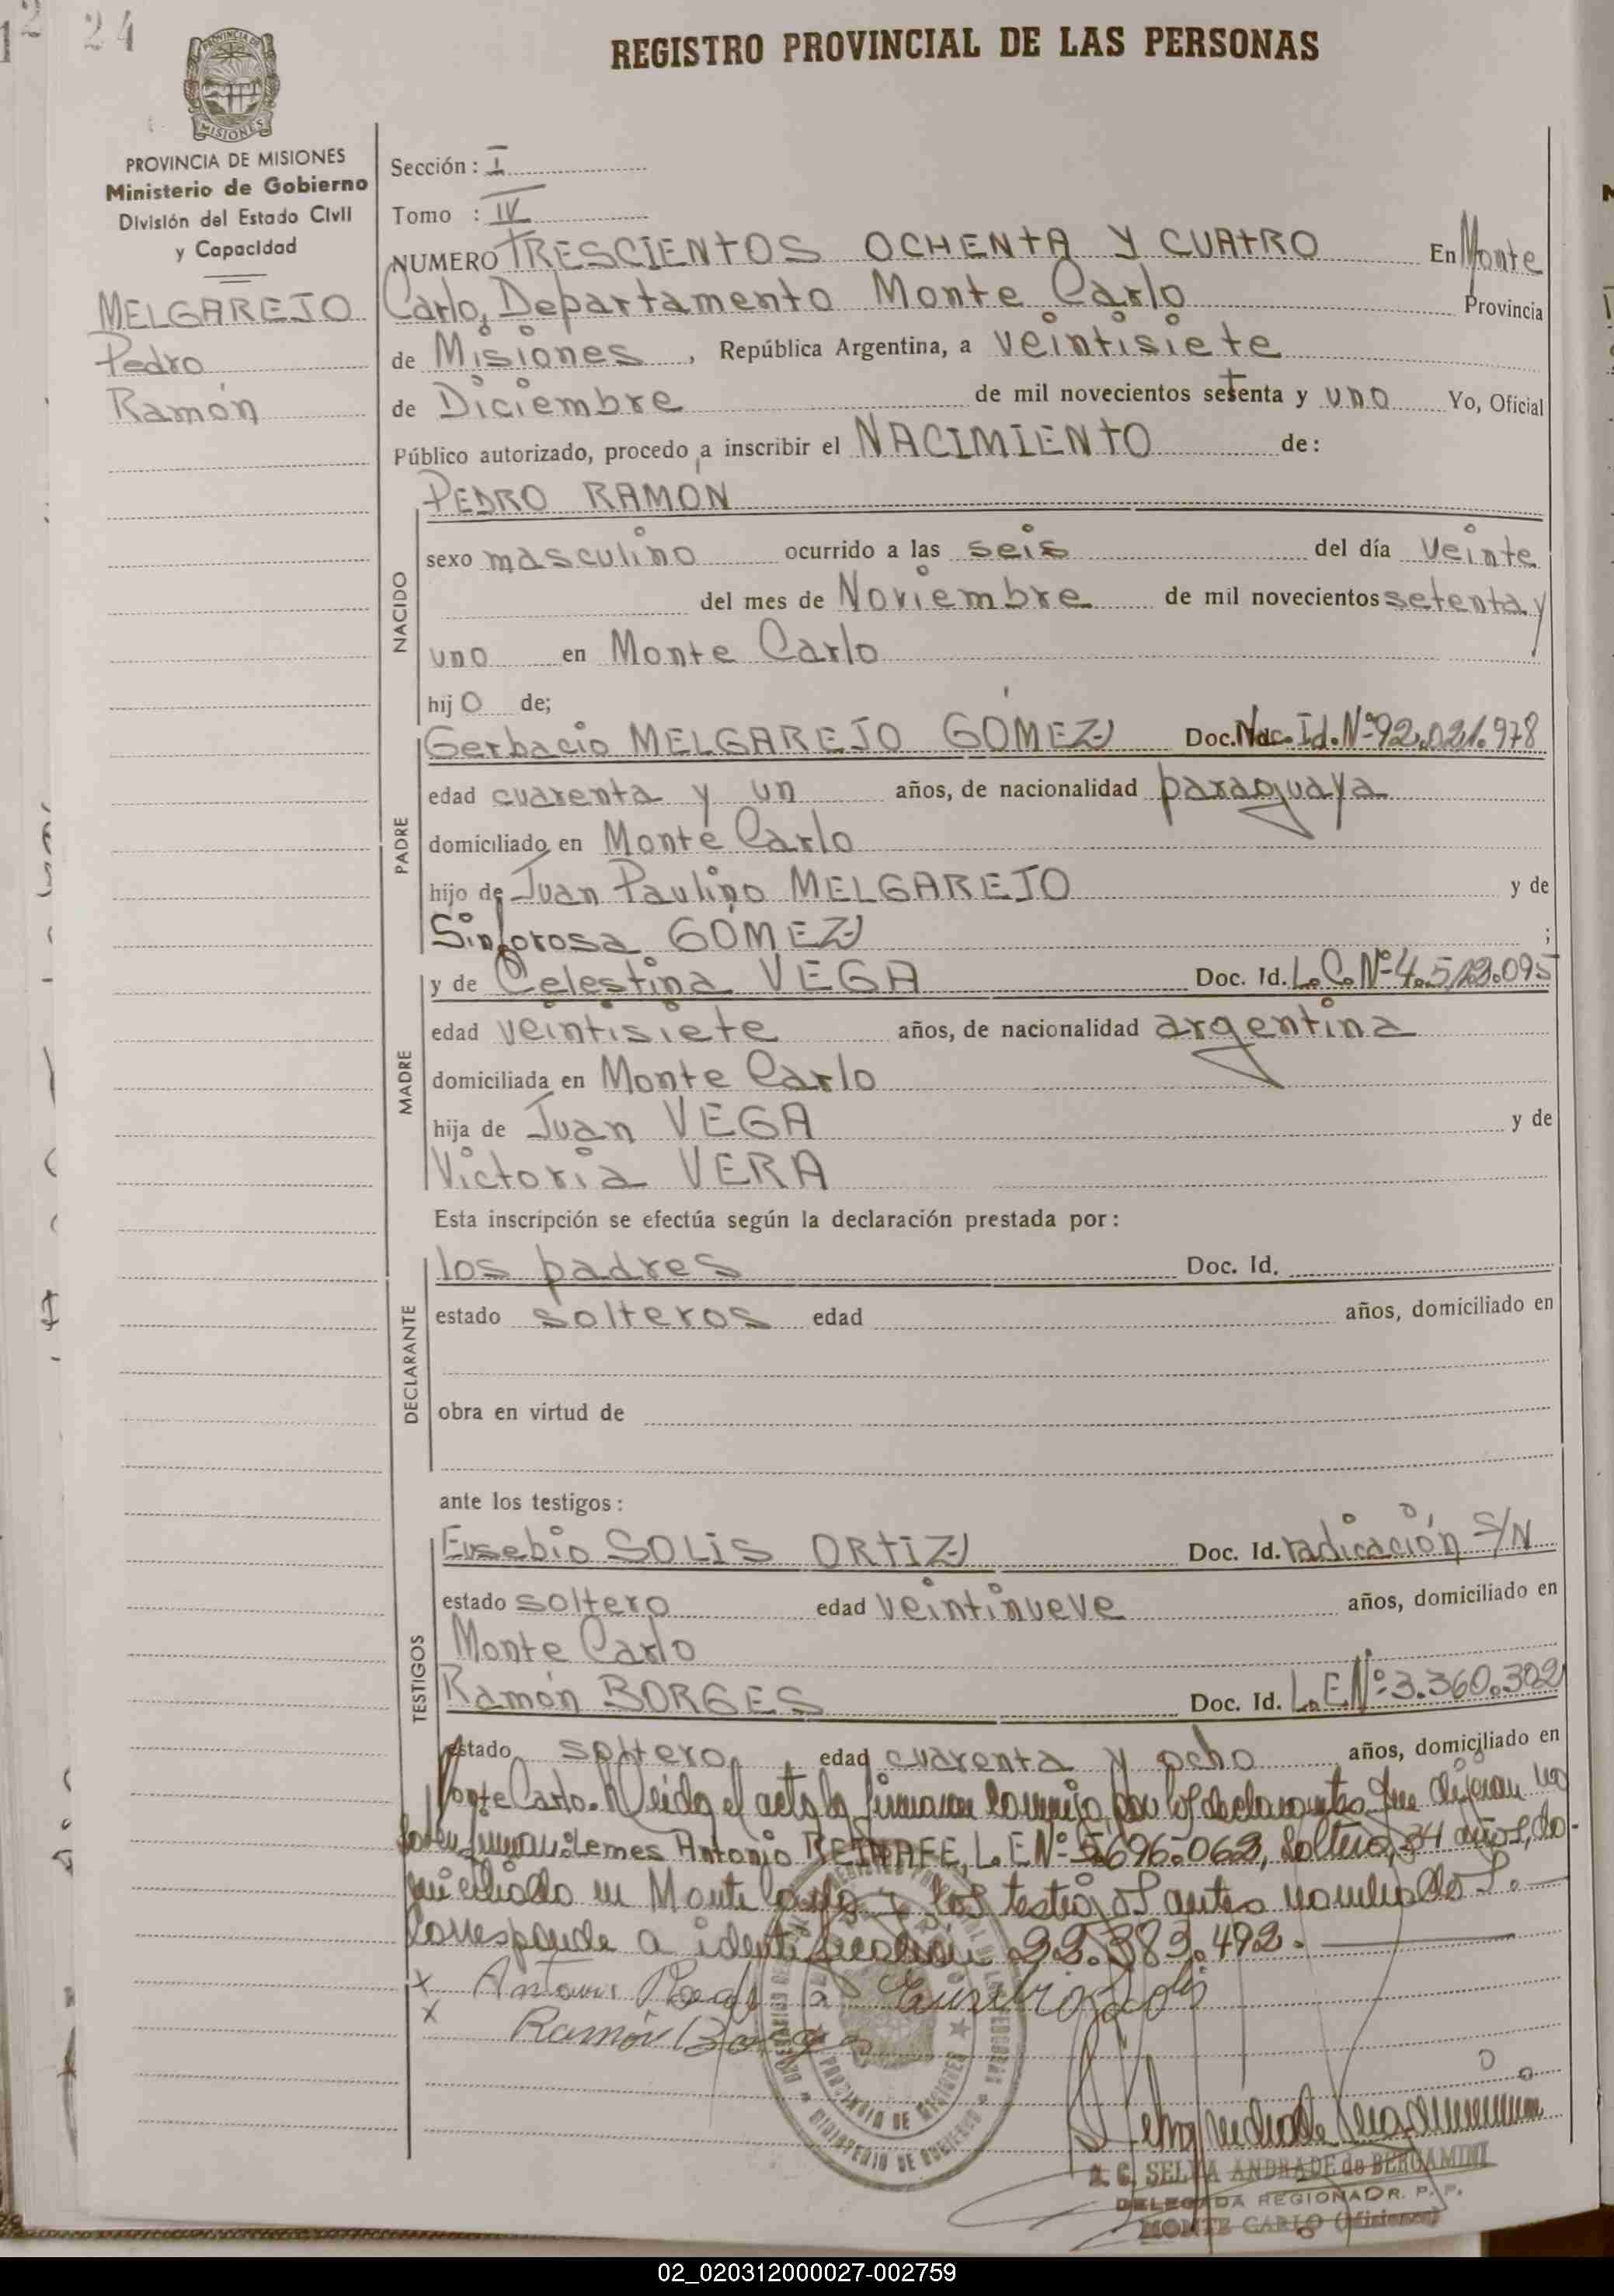 24
REGISTRO PROVINCIAL DE LAS PERSONAS
PROVINCIA DE MISIONES
PROVINCIA DE MISIONES
Ministerio de Gobierno
División del Estado Civil
y Capacidad
MELGAREJO
Pedro
Ramón
Sección: I
Tomo : IV
NUMERO TRESCIENTOS OCHENTA Y CUATRO En Monte
Carlo, Departamento Monte Carlo Provincia
de Misiones, República Argentina, a veintisiete
de Diciembre de mil novecientos setenta y uno Yo, Oficial
Público autorizado, procedo a inscribir el NACIMIENTO de:
PEDRO RAMÓN
NACIDO
sexo masculino ocurrido a las seis del día veinte
del mes de Noviembre de mil novecientos setenta y
uno en Monte Carlo
hijo de;
PADRE
Gerbacio MELGAREJO GÓMEZ Doc. Nac. Id. Nº 92.021.978
edad cuarenta y un años, de nacionalidad paraguaya
domiciliado en Monte Carlo
hijo de Juan Paulino MELGAREJO y de
Sinforosa GÓMEZ ;
MADRE
y de Celestina VEGA Doc. Id. L.C. Nº 4.512.095
edad veintisiete años, de nacionalidad argentina
domiciliada en Monte Carlo
hija de Juan VEGA y de
Victoria VERA
Esta inscripción se efectúa según la declaración prestada por:
DECLARANTE
los padres Doc. Id.
estado solteros edad años, domiciliado en
obra en virtud de
ante los testigos:
TESTIGOS
Eusebio SOLIS ORTIZ Doc. Id. radicación S/N
estado soltero edad veintinueve años, domiciliado en
Monte Carlo
Ramón BORGES Doc. Id. L.E Nº 3.360.302
estado soltero edad cuarenta y ocho años, domiciliado en
Monte Carlo. Leida el acta la firmaron conmigo, por los declarantes que dijeron no
saber firmar: Lemes Antonio L.E Nº 5.696.062, soltero, 34 años, do-
miciliado en Monte Carlo y los testigos antes nombrados.
Corresponde a identificación 22.383.492.
x Antonio Eusebio Solis
x Ramón Borges
PROVINCIA DE MISIONES
MINISTERIO DE GOBIERNO
SELVA ANDRADE de BERGAMINI
DELEGADA REGIONAL R. P. P.
MONTE CARLO (Misiones)
02_020312000027-002759